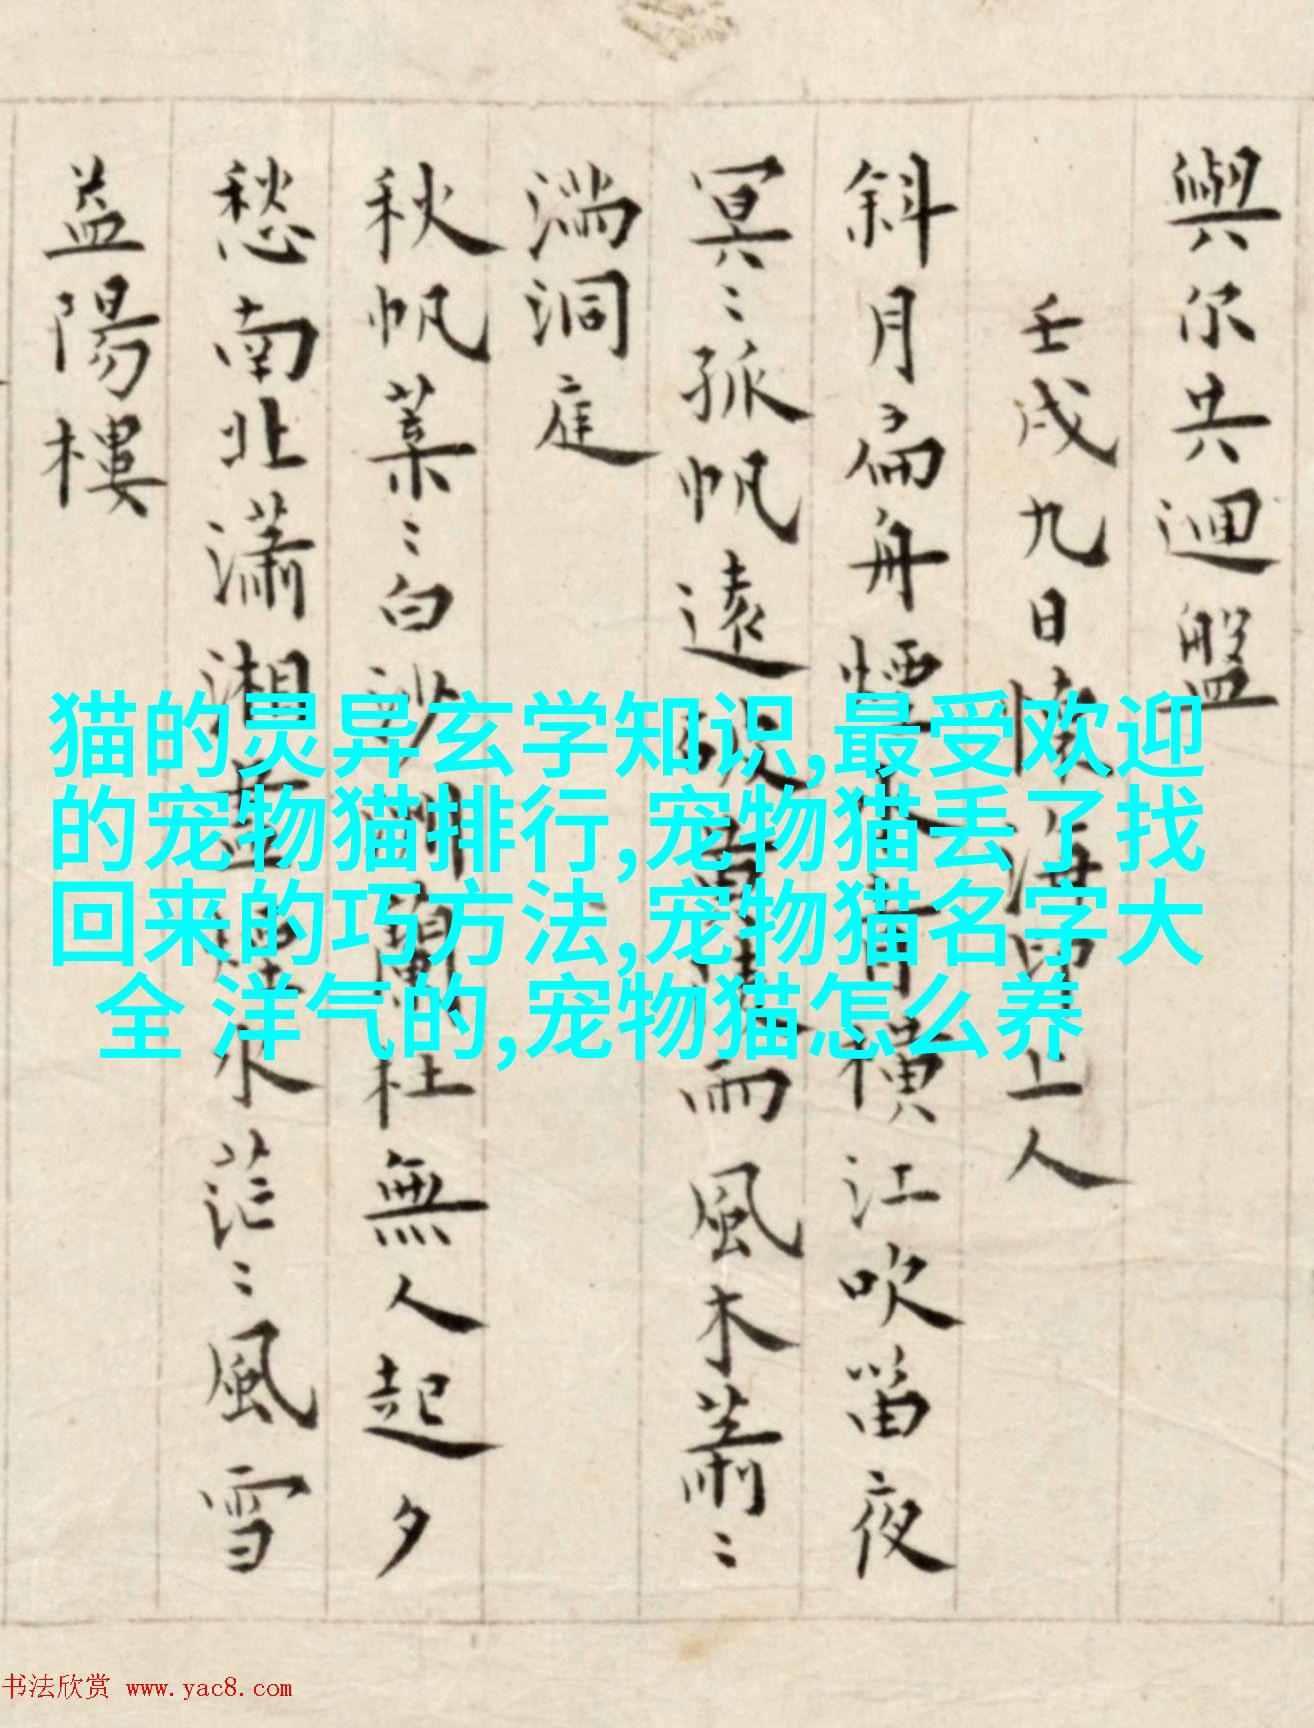 與尔共迴盤
壬戌九日懷海印上人
斜月扁舟煙水青橫江吹笛夜
冥〻孤帆遠 雨風木蕭〻
湍洞庭
秋帆葉〻白沙洲蘭杜無人起夕
愁南北瀟湘 水茫〻風雪
益陽樓
猫的灵异玄学知识,最受欢迎
的宠物猫排行,宠物猫丢了找
回来的巧方法,宠物猫名字大
全 洋气的,宠物猫怎么养
书法欣赏 www.yac8.com